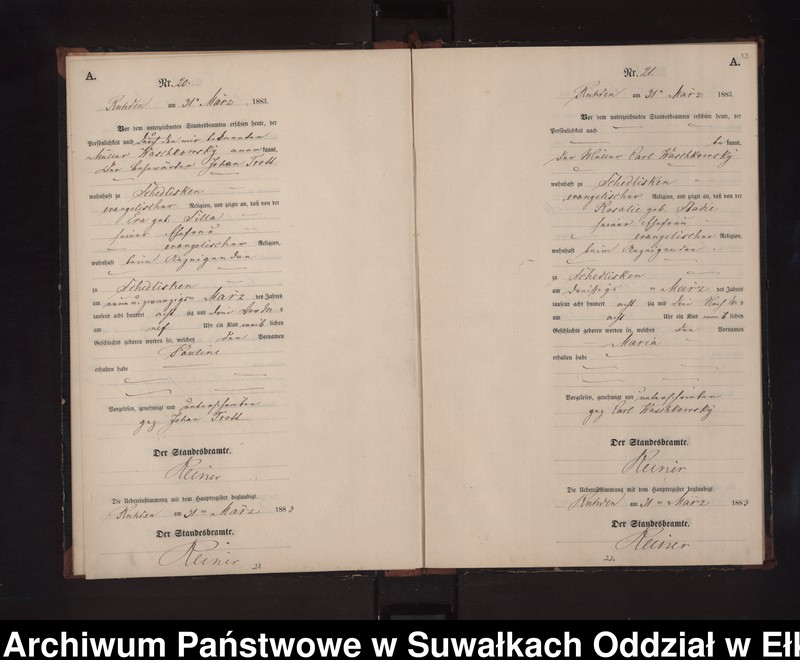 A.
Nr. 20.
Ruhden am 31ⁿ März 1883.
Vor dem unterzeichneten Standesbeamten erschien heute, der
Persönlichkeit nach durch den mir bekannten
Müller Waschkowsky kannt,
Der Johan Trott
wohnhaft zu Schedlisken
evangelischer Religion, und zeigte an, daß von der
Eva geb Silla
seiner Ehefrau
evangelischer Religion,
wohnhaft beim Anzeigenden
zu Schedlisken
am März des Jahres
tausend acht hundert acht zig und drei
um elf Uhr ein Kind weib lichen
Geschlechts geboren worden sei, welches den Vornamen
Pauline
erhalten habe
Vorgelesen, genehmigt und unterschrieben
gez Johan Trott
Der Standesbeamte.
Reiner
Die Uebereinstimmung mit dem Hauptregister beglaubigt
Ruhden am 31ⁿ März 1883
Der Standesbeamte.
Reiner
21
A.
Nr. 21.
Ruhden am 31ⁿ März 1883.
Vor dem unterzeichneten Standesbeamten erschien heute, der
Persönlichkeit nach
be kannt,
Der Müller Carl Waschkowsky
wohnhaft zu Schedlisken
evangelischer Religion, und zeigte an, daß von der
Rosalie geb Stadie
seiner Ehefrau
evangelischer Religion,
wohnhaft beim Anzeigenden
zu Schedlisken
am März des Jahres
tausend acht hundert acht zig und drei Nach M
um acht Uhr ein Kind weib lichen
Geschlechts geboren worden sei, welches den Vornamen
Maria
erhalten habe
Vorgelesen, genehmigt und unterschrieben
gez Carl Waschkowsky
Der Standesbeamte.
Reiner
Die Uebereinstimmung mit dem Hauptregister beglaubigt
Ruhden am 31ⁿ März 1883
Der Standesbeamte.
Reiner
22
Archiwum Państwowe w Suwałkach Oddział w Ełk